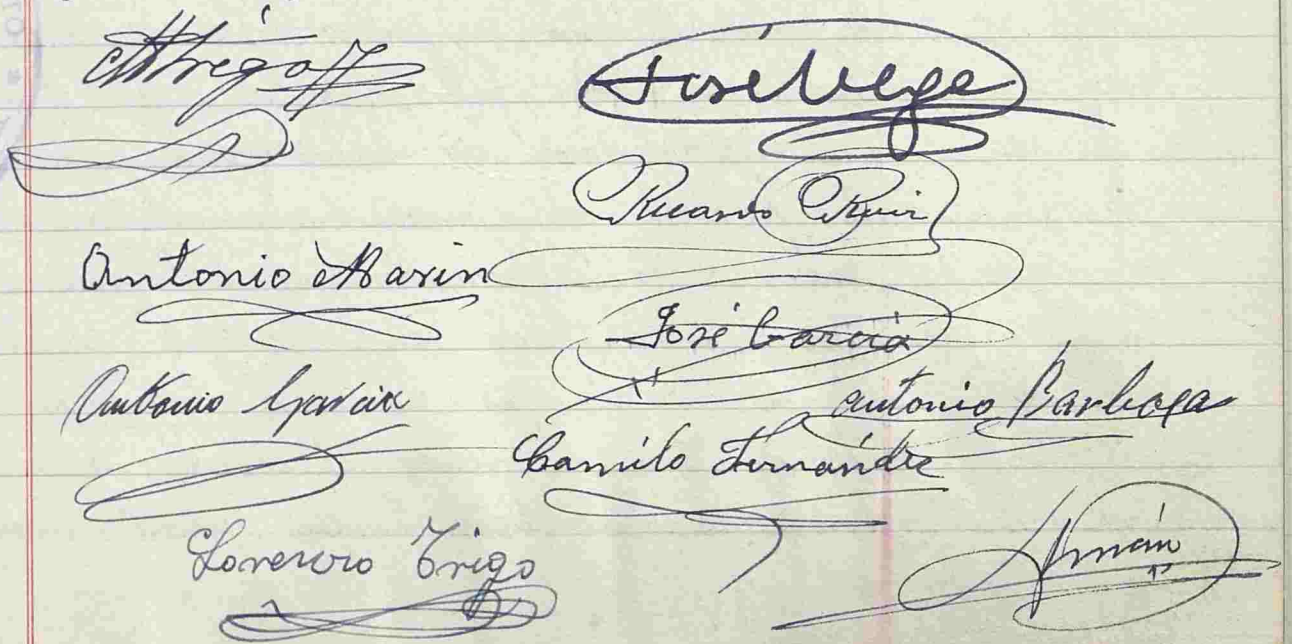 José Vega
Ricardo Ruiz
Antonio Marin
José García
Antonio Garcia
Antonio Barbosa
Camilo Fernández
Lorenzo Trigo